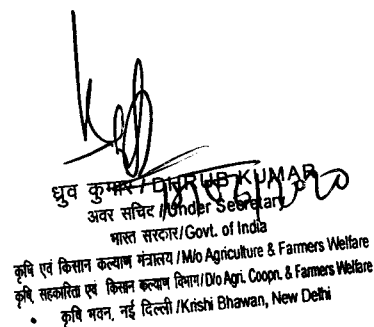 ध्रुव कुमार / DHRUB KUMAR
18/06/2020
अवर सचिव / Under Secretary
भारत सरकार/Govt. of India
कृषि एवं किसान कल्याण मंत्रालय / M/o Agriculture & Farmers Welfare
कृषि, सहकारिता एवं किसान कल्याण विभाग/D/o Agri. Coopn. & Farmers Welfare
कृषि भवन, नई दिल्ली /Krishi Bhawan, New Delhi